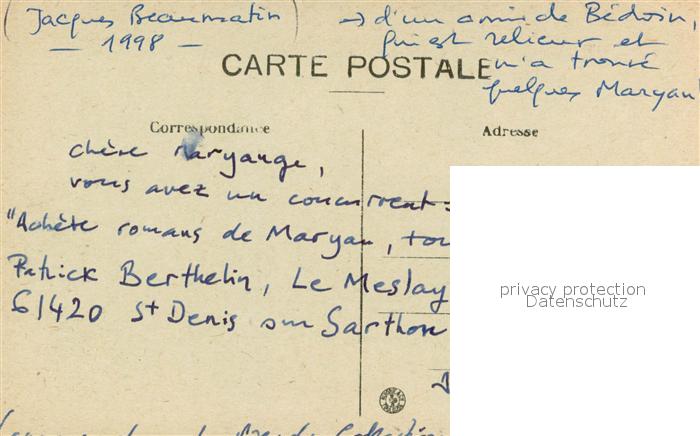 (Jacques Beaumatin
— 1998 —
→ d'un ami de Bédoin,
qui est relieur et
m'a trouvé
quelques Maryan
CARTE POSTALE
Correspondance
Adresse
chère Maryange,
vous avez un concurrent :
"Achète romans de Maryan, tou
Patrick Berthelin, Le Meslay
61420 St Denis sur Sarthon
privacy protection
Datenschutz